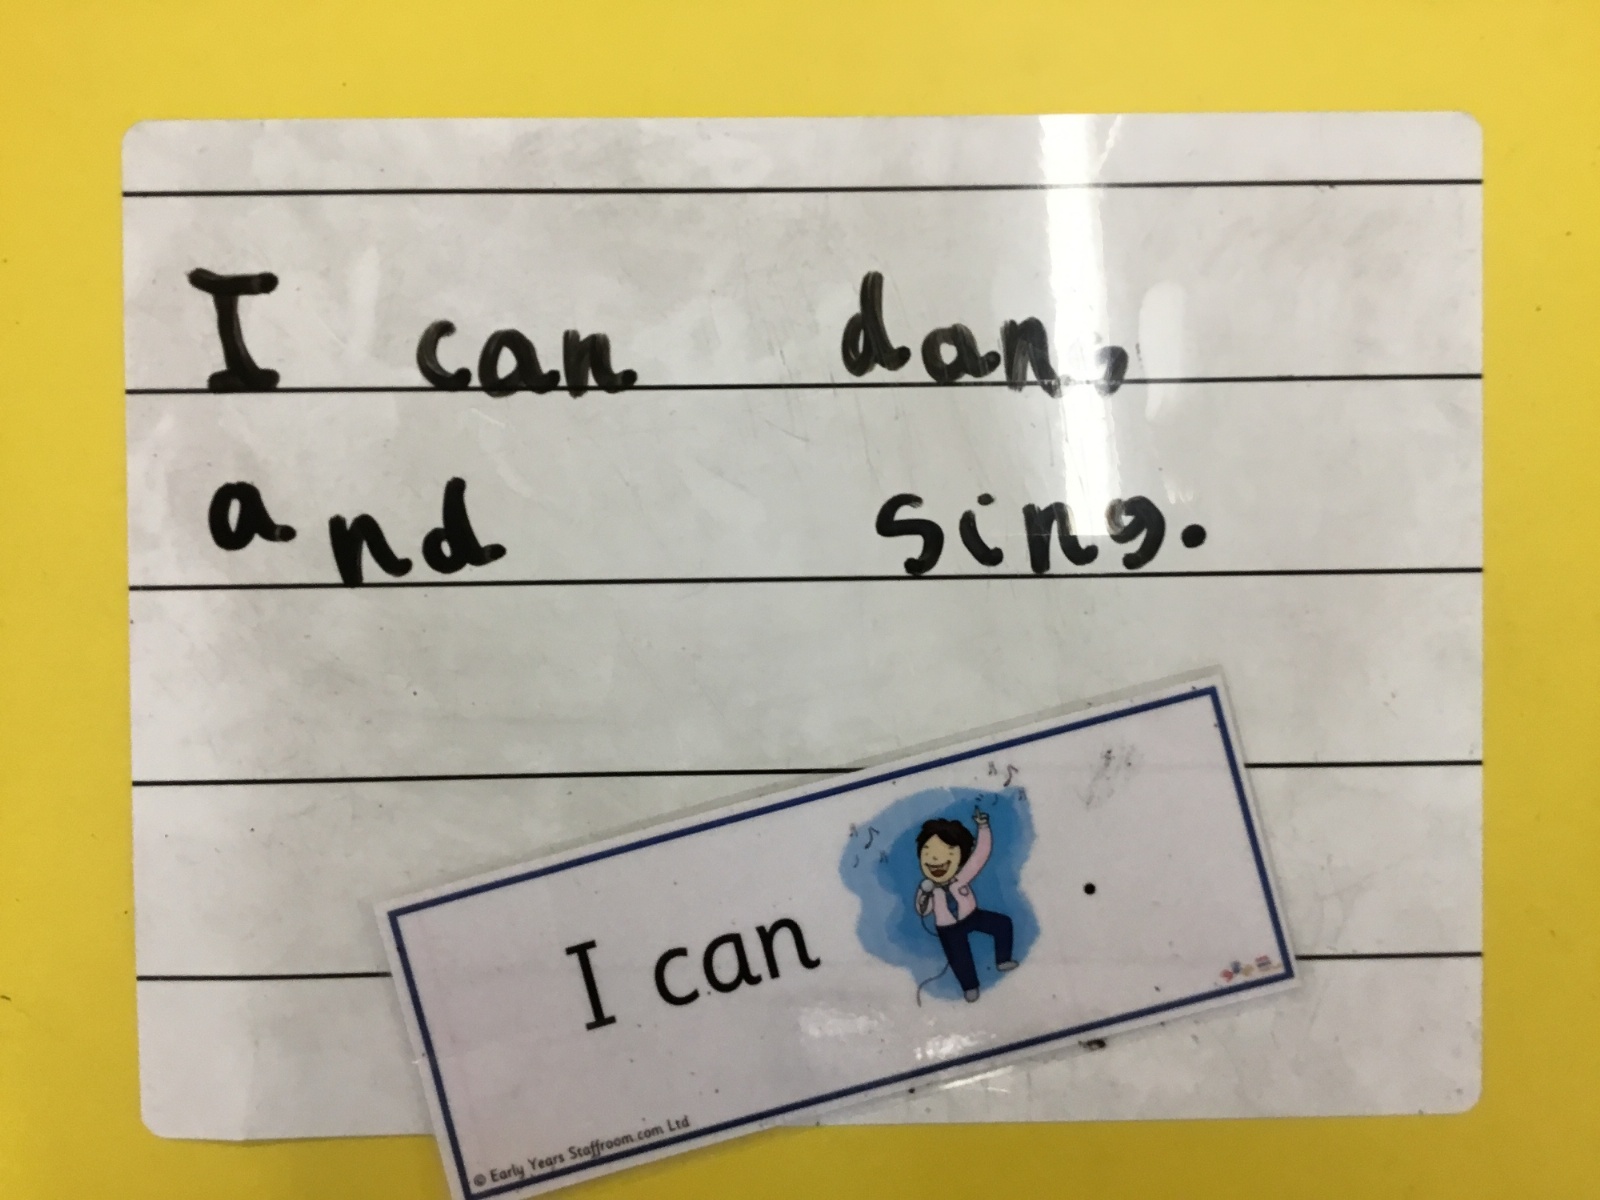 I can dans
and sing.
I can .
© Early Years Staffroom.com Ltd